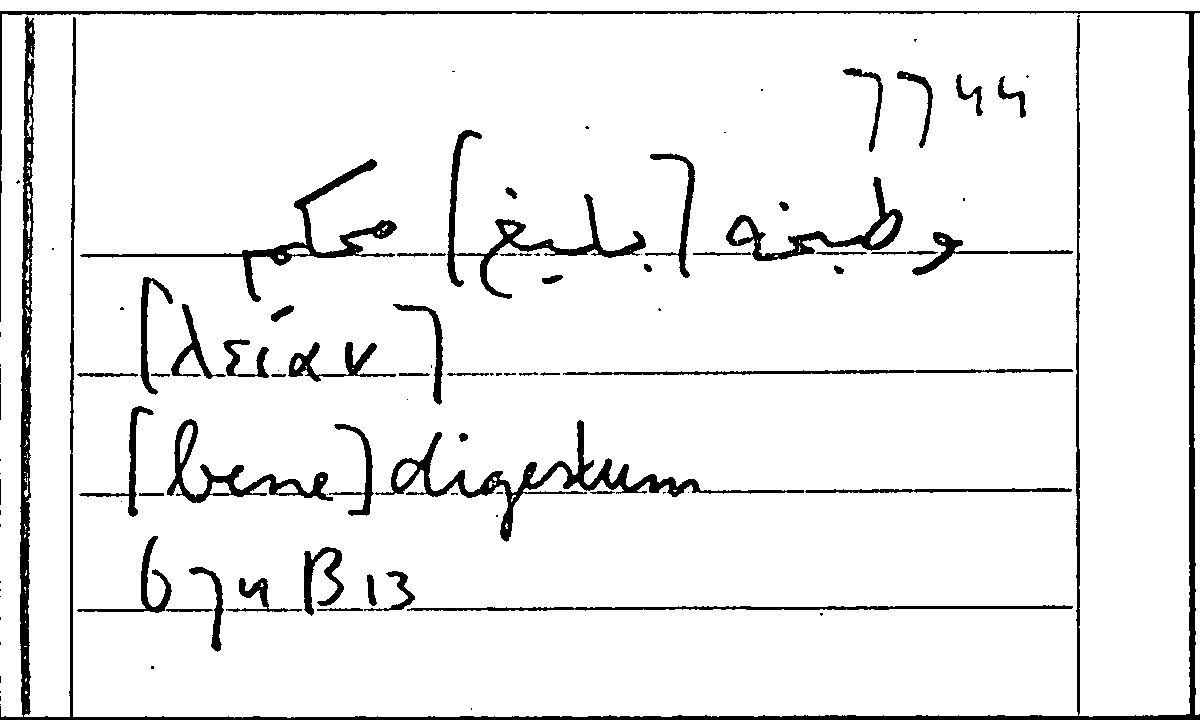 7744
وطبخه [بليغ] محكم
[λείαν]
[bene] digestum
674 B 13